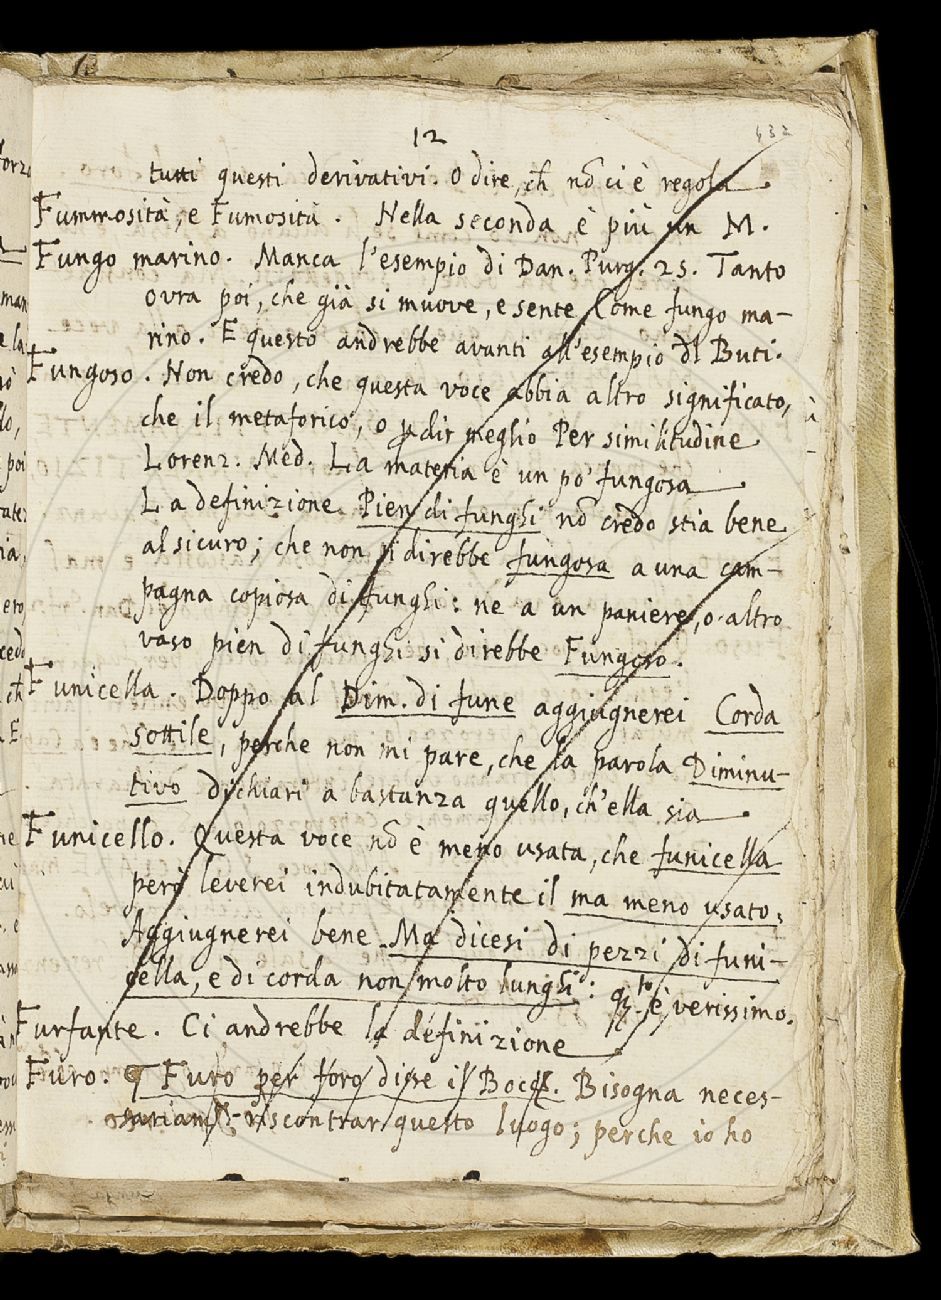 12
632
tutti questi derivativi. O dire, ch̃ nõ ci è regola
Fummosità, e Fumosità. Nella seconda è più un M.
Fungo marino. Manca l'esempio di Dan. Purg. 25. Tanto
ovra poi, che già si muove, e sente Come fungo ma-
rino. E questo andrebbe avanti all'esempio dl Buti.
Fungoso. Non credo, che questa voce abbia altro significato,
che il metaforico, o p dir meglio Per similitudine
Lorenz. Med. La materia è un po' fungosa
La definizione Pien di funghi nõ credo stia bene
al sicuro; che non si direbbe fungosa a una cam-
pagna copiosa di funghi: nè a un paniere, o altro
vaso pien di funghi si direbbe Fungoso.
Funicella. Doppo al Dim. di fune aggiugnerei Corda
sottile, perche non mi pare, che la parola Diminu-
tivo dichiari a bastanza quello, ch'ella sia
Funicello. Questa voce nõ è meno usata, che funicella
però leverei indubitatamente il ma meno usato.
Aggiugnerei bene Ma dicesi di pezzi di funi-
cella, e di corda non molto lunghi: è verissimo.
Furfante. Ci andrebbe la definizione
Furo. Furo per foro disse il Bocc. Bisogna neces-
riscontrar questo luogo; perche io ho